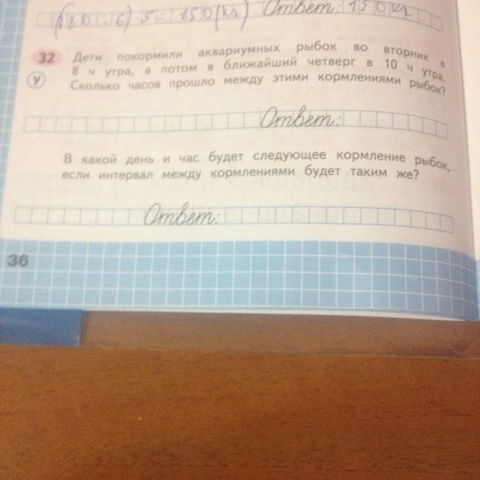 (180 : 6) · 5 = 150 (кг) Ответ: 150 кг
32 Дети покормили аквариумных рыбок во вторник в
У 8 ч утра, а потом в ближайший четверг в 10 ч утра.
Сколько часов прошло между этими кормлениями рыбок?
Ответ:
В какой день и час будет следующее кормление рыбок,
если интервал между кормлениями будет таким же?
Ответ:
36